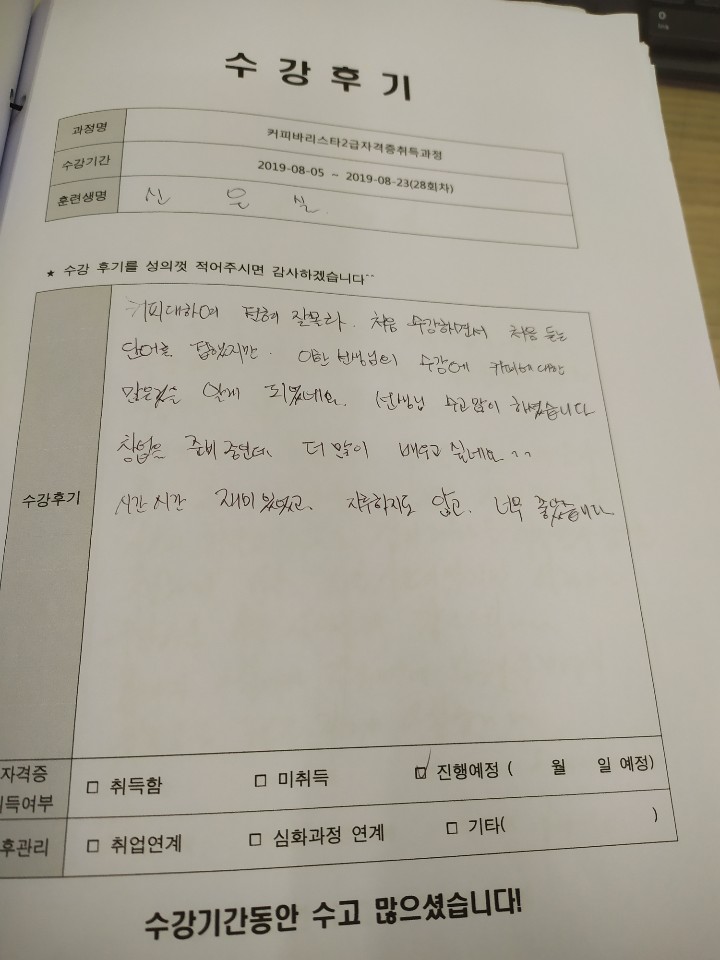 수강후기
과정명 커피바리스타2급자격증취득과정
수강기간 2019-08-05 ~ 2019-08-23(28회차)
훈련생명 신 은 실
★ 수강 후기를 성의껏 적어주시면 감사하겠습니다^^
커피대하여 전혀 잘몰라. 처음 수강하면서 처음 듣는
단어로 접했지만. 선생님의 수강에 커피에 대한
많은것을 알게 되었네요. 선생님 수고많이 하셨습니다
창업을 준비중인데. 더 많이 배우고 싶네요 ^^
시간 시간 재미 있었고. 지루하지도 않고. 너무 좋았습니다
수강후기
자격증
득여부
□ 취득함 □ 미취득 ☑ 진행예정 ( 월 일 예정)
후관리 □ 취업연계 □ 심화과정 연계 □ 기타( )
수강기간동안 수고 많으셨습니다!